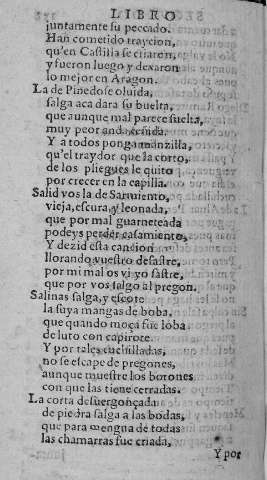 LIBRO
juntamente su peccado.
Han cometido traycion,
qu'en Castilla se criaron,
y fueron luego y dexaron
lo mejor en Aragon.
La de Pinedo se oluida,
salga aca dara su buelta,
que aunque mal parece suelta,
muy peor anda
Y a todos ponga manzilla,
qu'el traydor que la corto,
de los pliegues le quito
por crecer en la capilla.
Salid vos la de Sarmiento,
vieja, escura, y leonada,
que por mal guarneteada
podeys perder casamiento.
Y dezid esta cancion
llorando vuestro desastre,
por mi mal os vi yo sastre,
que por vos salgo al pregon.
Salinas salga, y escote
la suya mangas de boba,
que quando moça fue loba
de luto con capirote.
Y por tales cuchilladas,
no se escape de pregones,
aunque muestre los botones
con que las tiene cerradas.
La corta desuergonçada
de piedra salga a las bodas,
que para mengua de todas
las chamarras fue criada,
Y por